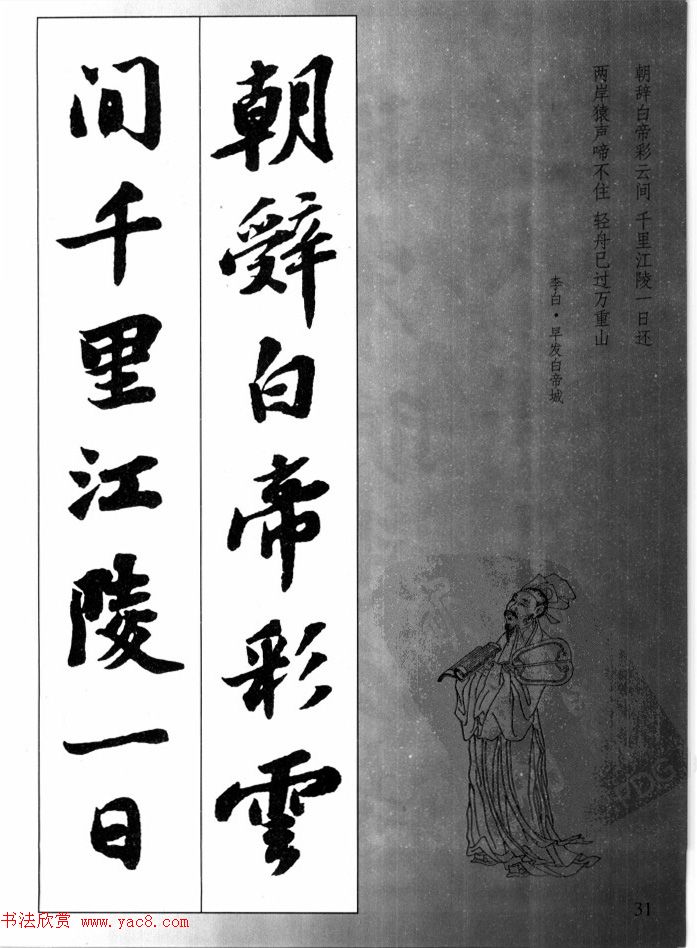 朝辞白帝彩云间 千里江陵一日还
两岸猿声啼不住 轻舟已过万重山
李白·早发白帝城
朝辤白帝彩雲
间千里江陵一日
PDG
31
书法欣赏 www.yac8.com